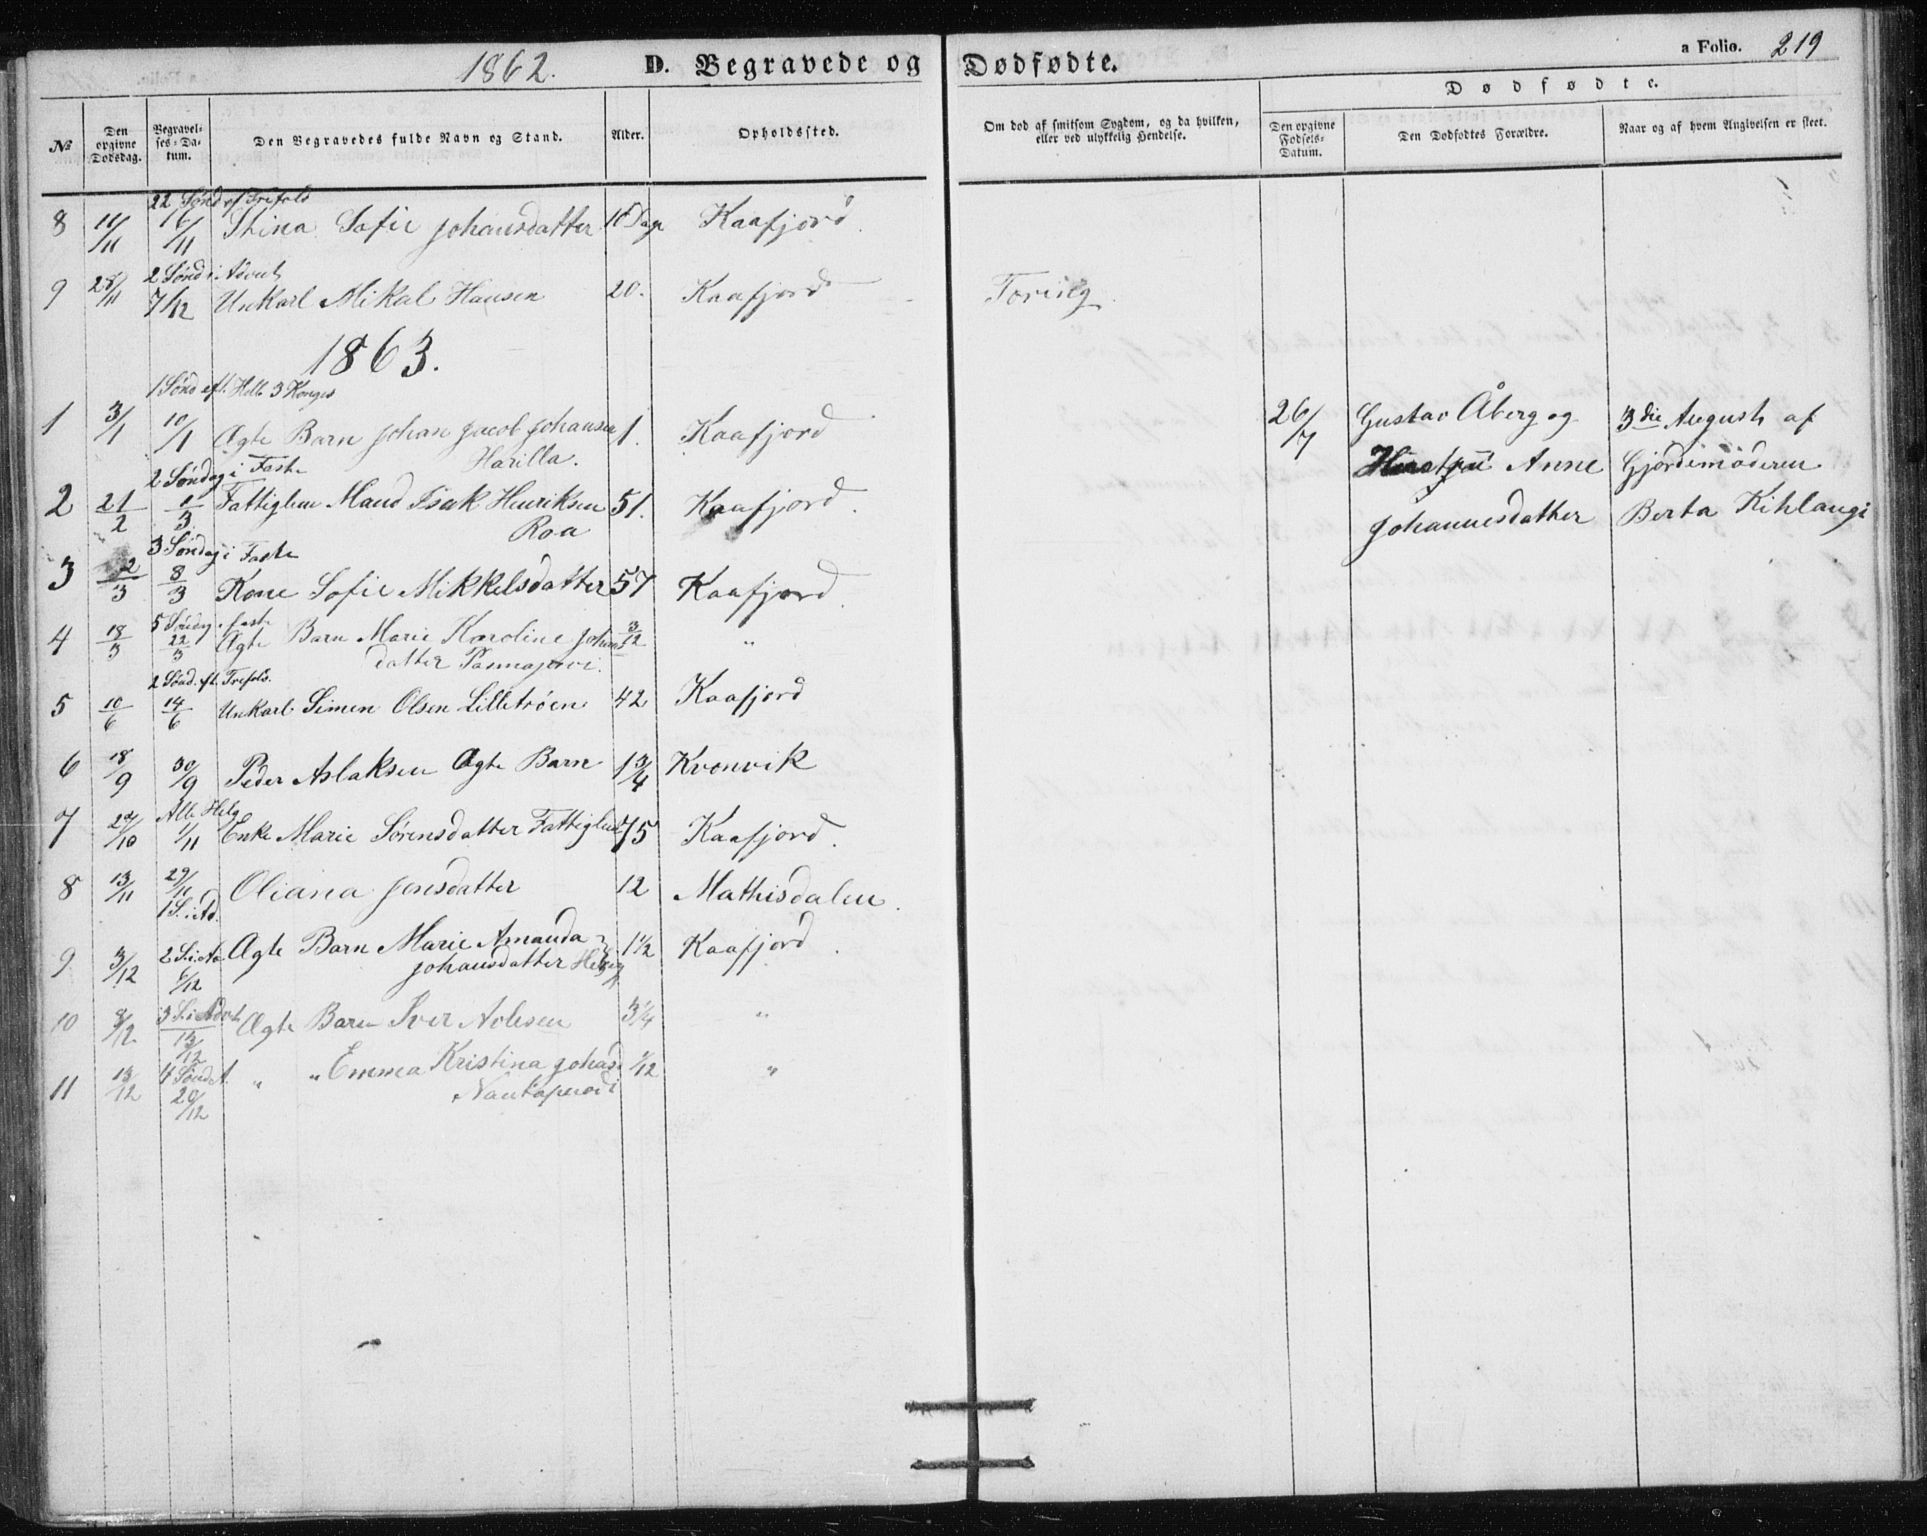 1862. D. Begravede og Dødfødte. a Folio. 219
No
Den opgivne Dødsdag.
Begravelses-Datum.
Den Begravedes fulde Navn og Stand.
Alder.
Opholdssted.
Om død af smitsom Sygdom, og da hvilken, eller ved ulykkelig Hendelse.
Dødfødte.
Den opgivne Fødsels-Datum.
Den Dødfødtes Forældre.
Naar og af hvem Angivelsen er skeet.
22 Sønd. ef Trefold
8 11/11 16/11 Stina Safie Johansdatter 10 Dage Kaafjord
2 Sønd i Advent
9 28/11 7/12 Unkarl Mikal Hansen 20. Kaafjord
1863.
1 Sønd eft. Hell. 3 Konger
1 3/1 10/1 Ægte Barn Johan Jacob Johansen 1. Kaafjord
Harilla.
2 Søndag i Faste
2 21/2 1/3 Fattiglem Mand Isak Henriksen 51. Kaafjord.
Roa
3 Søndag i Faste
3 2/3 8/3 Kone Sofie Mikkelsdatter 57 Kaafjord.
5 Søndag i faste
4 18/3 22/3 Ægte Barn Marie Karoline Johans 3/12 "
datter
2 Sønd. eft. Trefold.
5 10/6 14/6 Unkarl Simen Olsen Lilletrøen 42 Kaafjord
6 18/9 30/9 Peder Aslaksen Ægte Barn 1 3/4 Kvenvik
Alle Helg
7 1/11 Enke Marie Sørensdatter Fattiglem 75 Kaafjord.
8 13/11 29/11 Oliana Jensdatter 12 Mathisdalen.
1 S. i Ad.
9 3/12 2 S. i Ad Ægte Barn Marie Amanda 1 1/2 Kaafjord.
6/12 Johansdatter
10 8/12 3 S. i Advt Ægte Barn Iver 3 1/4 "
13/12
11 13/12 4 Sønd A. " " Emma Kristina Johasd. 1/12 "
20/12
26/7 Gustav Åberg og 3die August af
Anne Gjordemoderen
Johannesdatter Berta Kihlangi